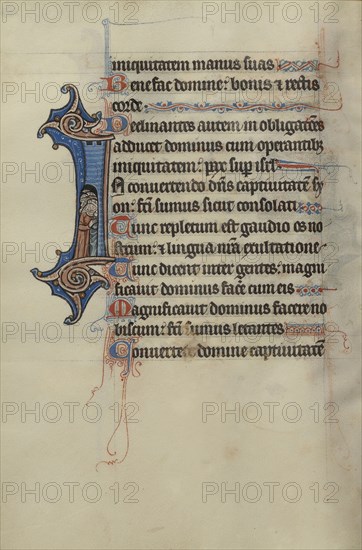 iniquitatem manus suas
Benefac domine: bonis & rectis
corde.
Declinantes autem in obligatões
adducet dominus cum operantibz
iniquitatem: pax sup isrl
In conuertendo dn̄s captiuitatē sy
on: fc̄i sumus sicut consolati
Tunc repletum est gaudio os no
strum: & lingua nrā exultatione
Tunc dicent inter gentes: magni
ficauit dominus facē cum eis
Magnificauit dominus facere no
biscum: fc̄i sumus letantes
Conuerte domine captiuitatē
PHOTO 12